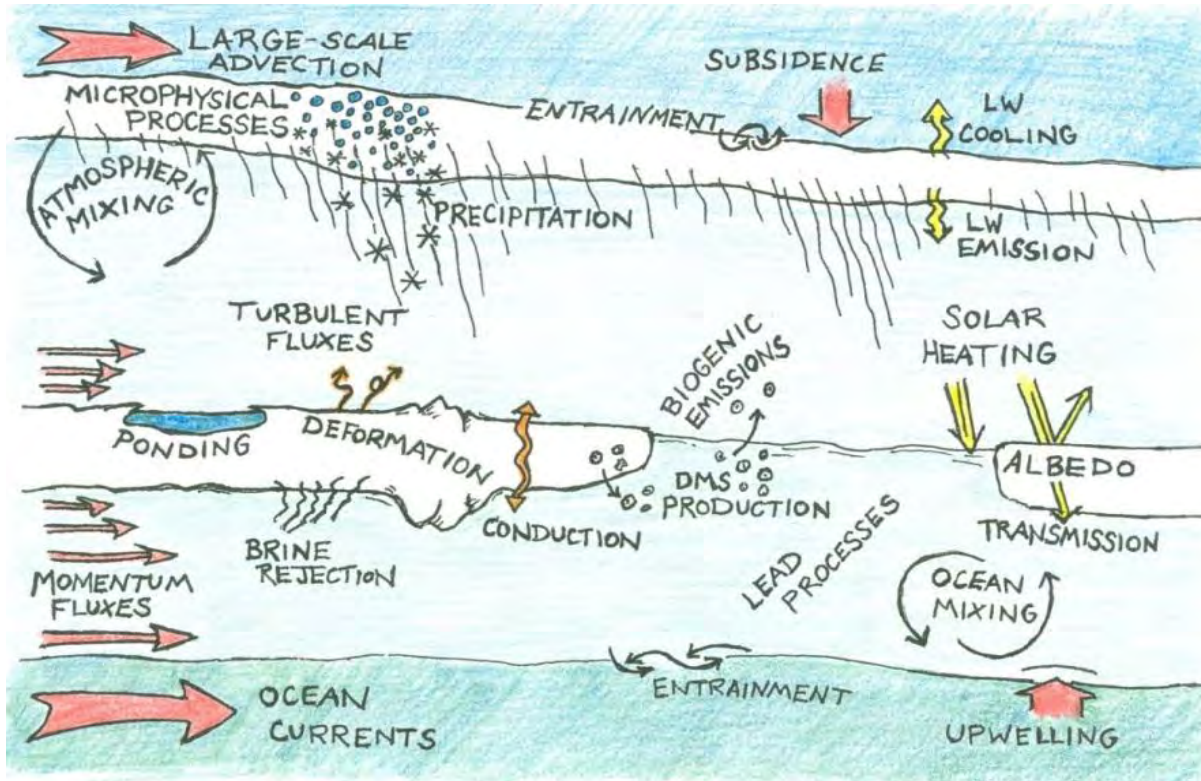 LARGE-SCALE
ADVECTION
SUBSIDENCE
MICROPHYSICAL
PROCESSES
ENTRAINMENT
LW
COOLING
ATMOSPHERIC
MIXING
PRECIPITATION
LW
EMISSION
TURBULENT
FLUXES
BIOGENIC
EMISSIONS
SOLAR
HEATING
PONDING
DEFORMATION
ALBEDO
DMS
PRODUCTION
CONDUCTION
TRANSMISSION
BRINE
REJECTION
LEAD
PROCESSES
MOMENTUM
FLUXES
OCEAN
MIXING
ENTRAINMENT
OCEAN
CURRENTS
UPWELLING